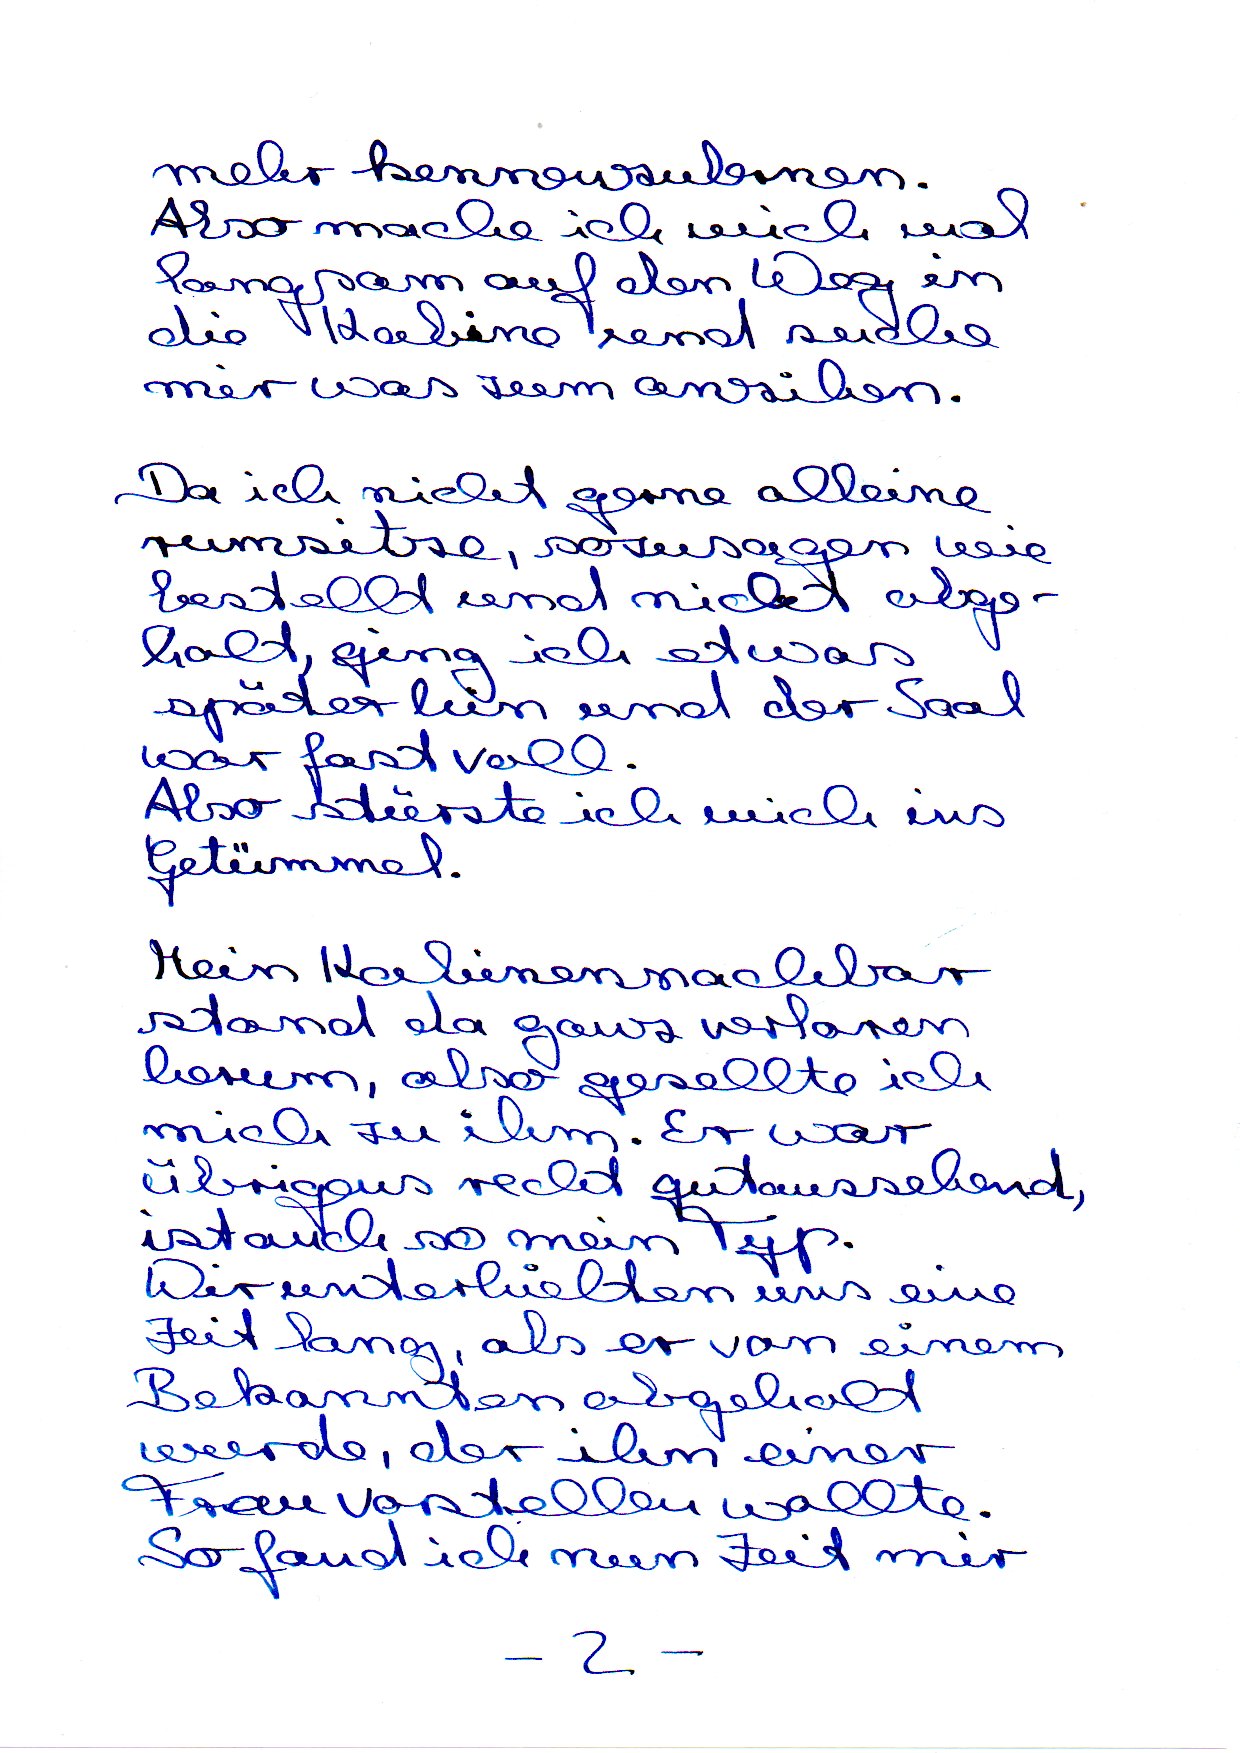 mehr kennenzulernen.
Also mache ich mich mal
langsam auf den Weg in
die Kabine und suche
mir was zum anziehen.
Da ich nicht gerne alleine
rumsitze, sozusagen wie
bestellt und nicht abge-
holt, ging ich etwas
später hin und der Saal
war fast voll.
Also stürzte ich mich ins
Getümmel.
Mein Kabinennachbar
stand da ganz verloren
herum, also gesellte ich
mich zu ihm. Er war
übrigens recht gutaussehend,
ist auch so mein Typ.
Wir unterhielten uns eine
Zeit lang, als er von einem
Bekannten abgeholt
wurde, der ihm einer
Frau vorstellen wollte.
So fand ich nun Zeit mir
- 2 -